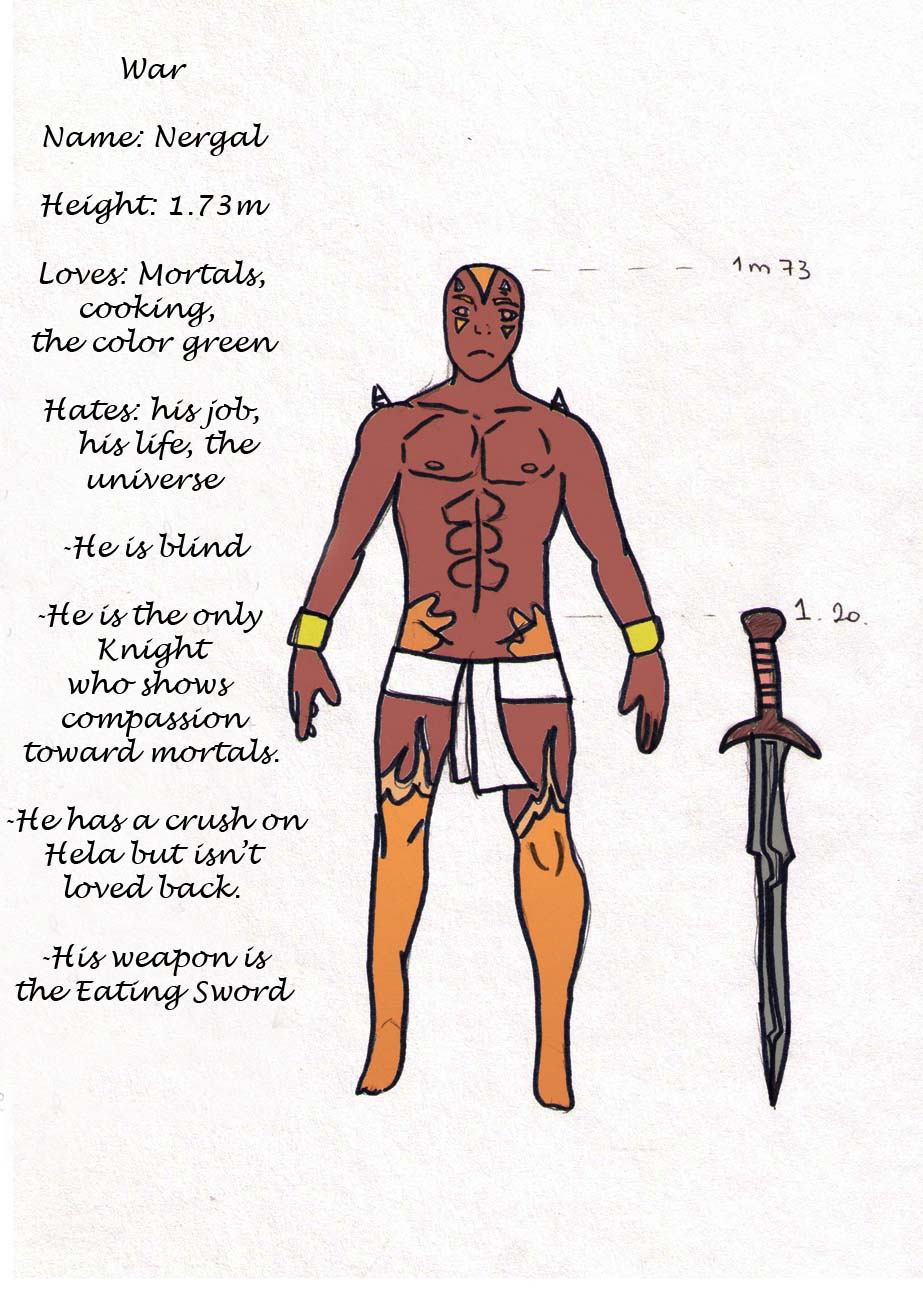 War
Name: Nergal
Height: 1.73m
Loves: Mortals,
cooking,
the color green
Hates: his job,
his life, the
universe
-He is blind
-He is the only
Knight
who shows
compassion
toward mortals.
-He has a crush on
Hela but isn't
loved back.
-His weapon is
the Eating Sword
1m73
1.20.